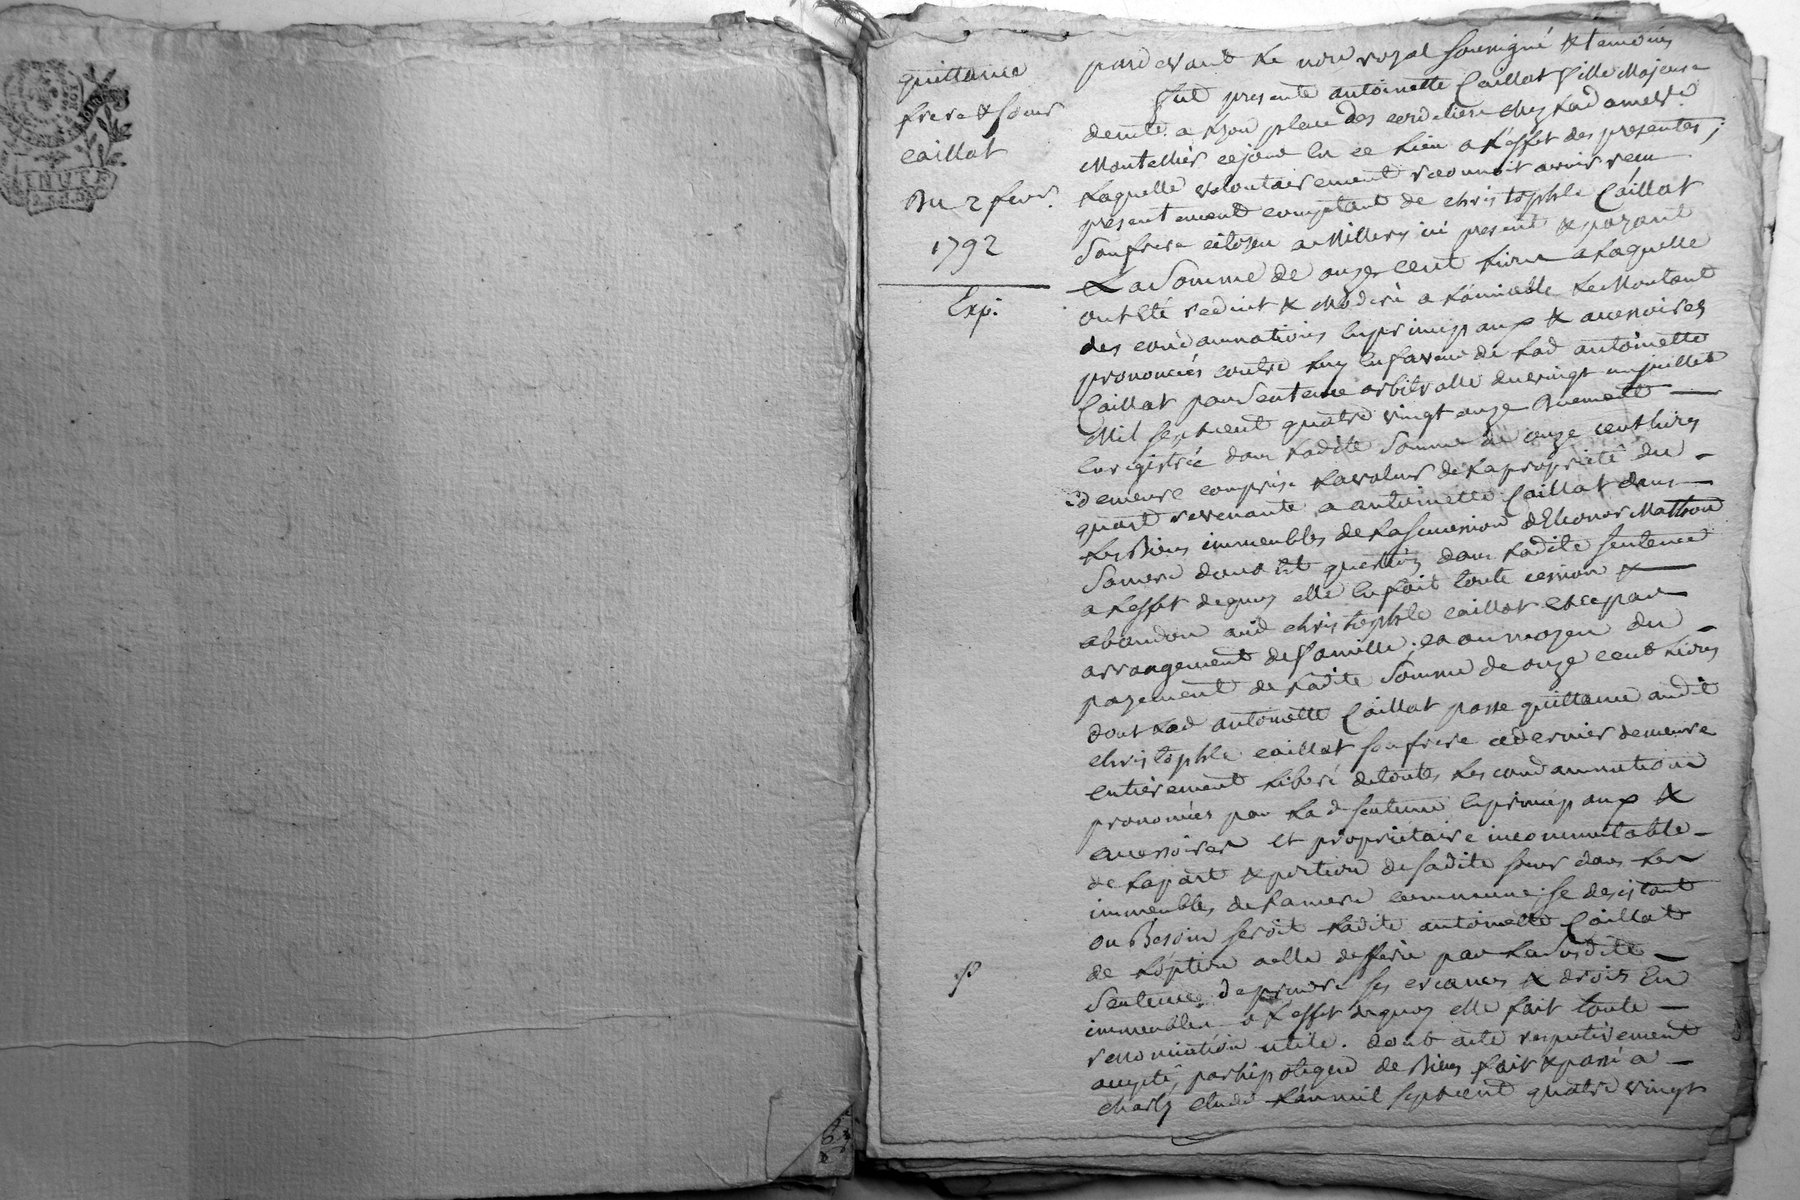 MINUTE
quittance
frere & sœur
caillat
Du 2 fevr.
1792
Exp.
pardevant Le nore royal soussigné & temoins
fut presente antoinette Caillat fille Majeure
demte a Lyon place des cordeliers chez Lad amelle.
Montellier cejour en ce Lieu a L'effet des presentes ;
Laquelle volontairement reconnoit avoir recu
presentement comptant de christophle Caillat
son frere citoyen a Millery ici present & payant
La somme de onze cent Livres a Laquelle
ont été reduit & Modéré a L'amiable Le Montant
des condamnations en principaux & accessoires
prononcées contre Luy en faveur de Lad antoinette
Caillat par sentence arbitralle du vingt un juillet
Mil sept cent quatre vingt onze Duement
Enregistrée dans Ladite somme de onze cent Livres
demeure comprise La valeur de La proprieté du
quart revenante a antoinette Caillat dans
Les Biens immeubles de La succession d'Eleonor Mathon
sa mere dont est question dans Ladite sentence
a L'effet dequoy elle en fait toute cession &
abandon aud christophle caillat et ce par
arrangement de famille ; et au moyen du
payement de Ladite somme de onze cent Livres
dont Lad antoinette Caillat passe quittance audit
christophle caillat son frere ce dernier demeure
entierement Liberé de toutes Les condamnations
prononcées par Lad sentence en principaux &
accessoires et proprietaire incommutable
de La part & portion de sadite sœur dans Les
immeubles de La mere commune. se desistant
ou Besoin seroit Ladite antoinette Caillat
de L'option a elle defferée par La susdite
sentence de prendre ses creances & droits En
immeubles a L'effet dequoy elle fait toute
renonciation utile. dont acte respectivement
accepté, par hipoteque de Biens fait & passé a
charly Etude L'an mil sept cent quatre vingt